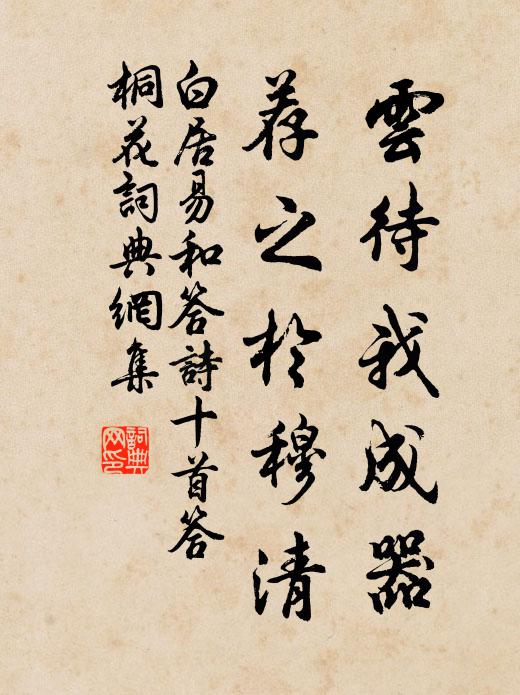 雲待我成器
荐之於穆清
白居易和答詩十首答
桐花詞典網集
詞典
网印